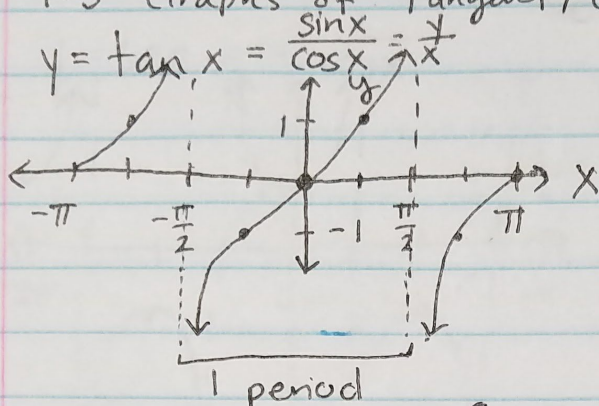 Graphs of
y = tan x = sinx/cosx = y/x
y
1
x
-π -π/2 -1 π/2 π
1 period